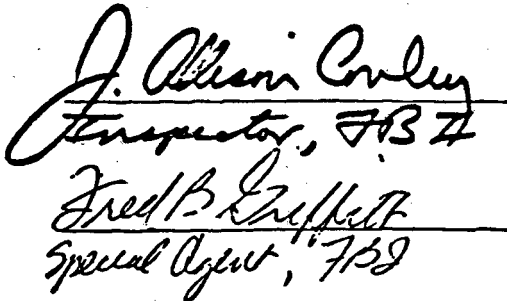 J. Allison Conley
Inspector, FBI
Fred B Griffith
Special Agent, FBI